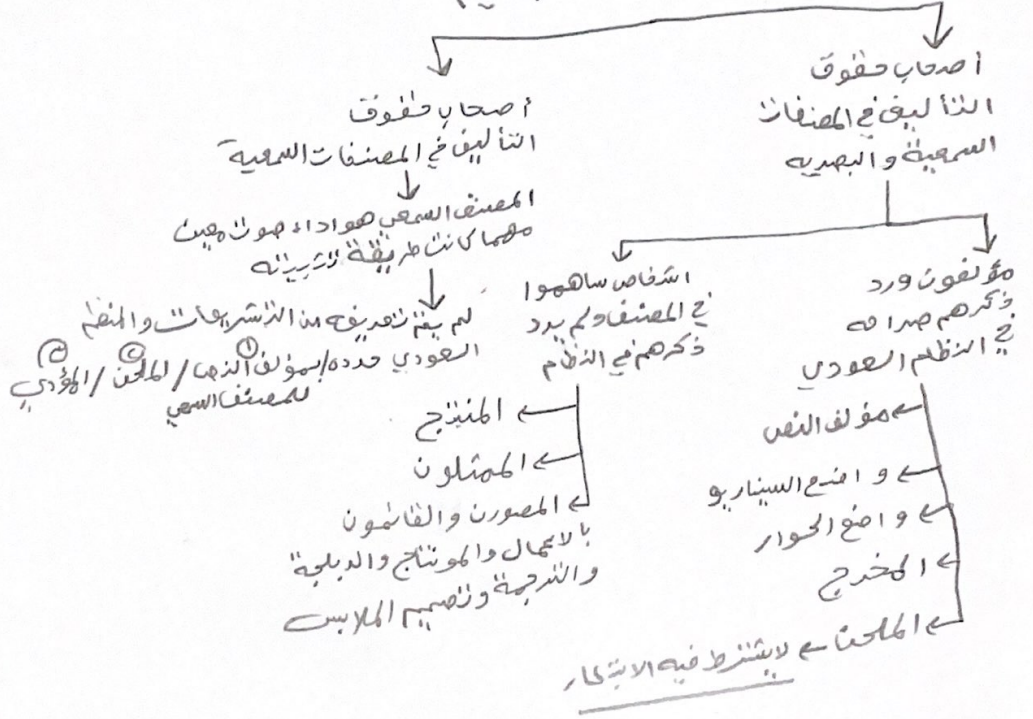 أصحاب حقوق
التأليف في المصنفات
السمعية والبصرية
مؤلفون ورد
ذكرهم صراحه
في النظام السعودي
مؤلف النص
واضع السيناريو
واضع الحوار
المخرج
الملحن ← لايشترط فيه الابتكار
اشخاص ساهموا
في المصنف ولم يرد
ذكرهم في النظام
المنتج
الممثلون
المصورن والقائمون
بالاعمال والمونتاج والدبلجة
والترجمة وتصميم الملابس
أصحاب حقوق
التأليف في المصنفات السمعية
المصنف السمعي هو اداء صوت معين
مهما كانت طريقة
لم يتم تعريفه من التشريعات والمنظم
السعودي حدده/بمؤلف النص/الملحن/المؤدي
للمصنف السمعي